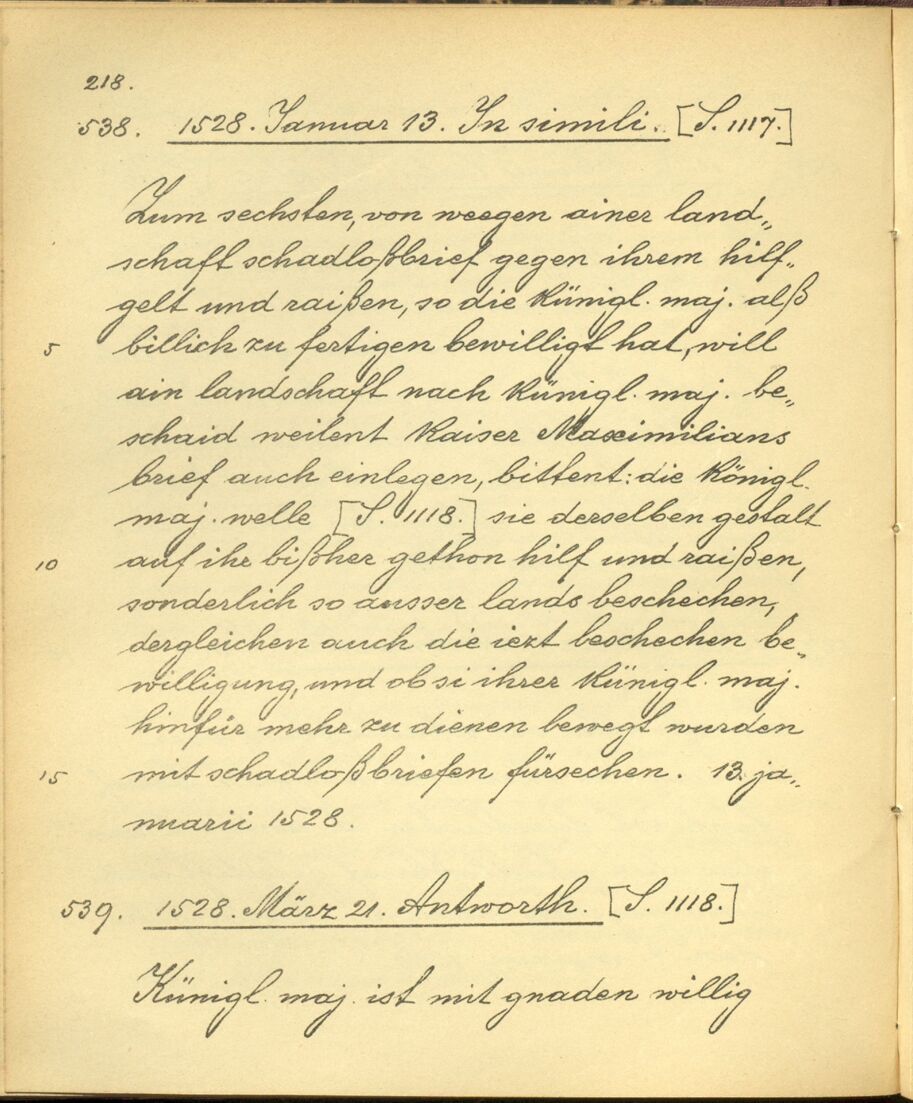 218.
538. 1528. Januar 13. In simili. [S. 1117.]
Zum sechsten, von weegen ainer land„
schaft schadloßbrief gegen ihrem hilf„
gelt und raißen, so die künigl. maj. alß
5 billich zu fertigen bewilligt hat, will
ain landschaft nach künigl. maj. be„
schaid weilent kaiser Maximilians
brief auch einlegen, bittent: die königl.
maj. welle [S. 1118.] sie derselben gestalt
10 auf ihr bißher gethon hilf und raißen,
sonderlich so ausser lands beschechen,
dergleichen auch die iezt beschechen be„
willigung, und ob si ihrer künigl. maj.
hinfür mehr zu dienen bewegt wurden
15 mit schadloßbriefen fürsechen. 13. ja„
nuarii 1528.
539. 1528. März 21. Antworth. [S. 1118.]
Künigl. maj. ist mit gnaden willig